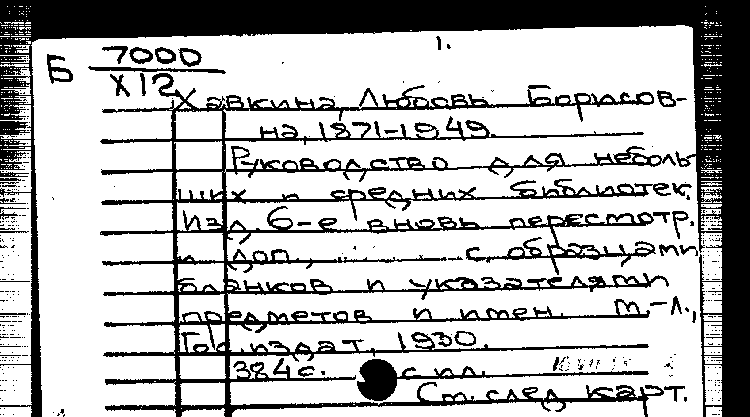 1.
Б 7000
X12
Хавкина, Любовь Борисов-
на, 1871-1949.
Руководство для неболь
ших и средних библиотек.
Изд. 6-е вновь пересмотр.
и доп., с образцами
бланков и указателями
предметов и имен. М.-Л.,
Гос. издат, 1930.
384 с. с ил.
См. след. карт.